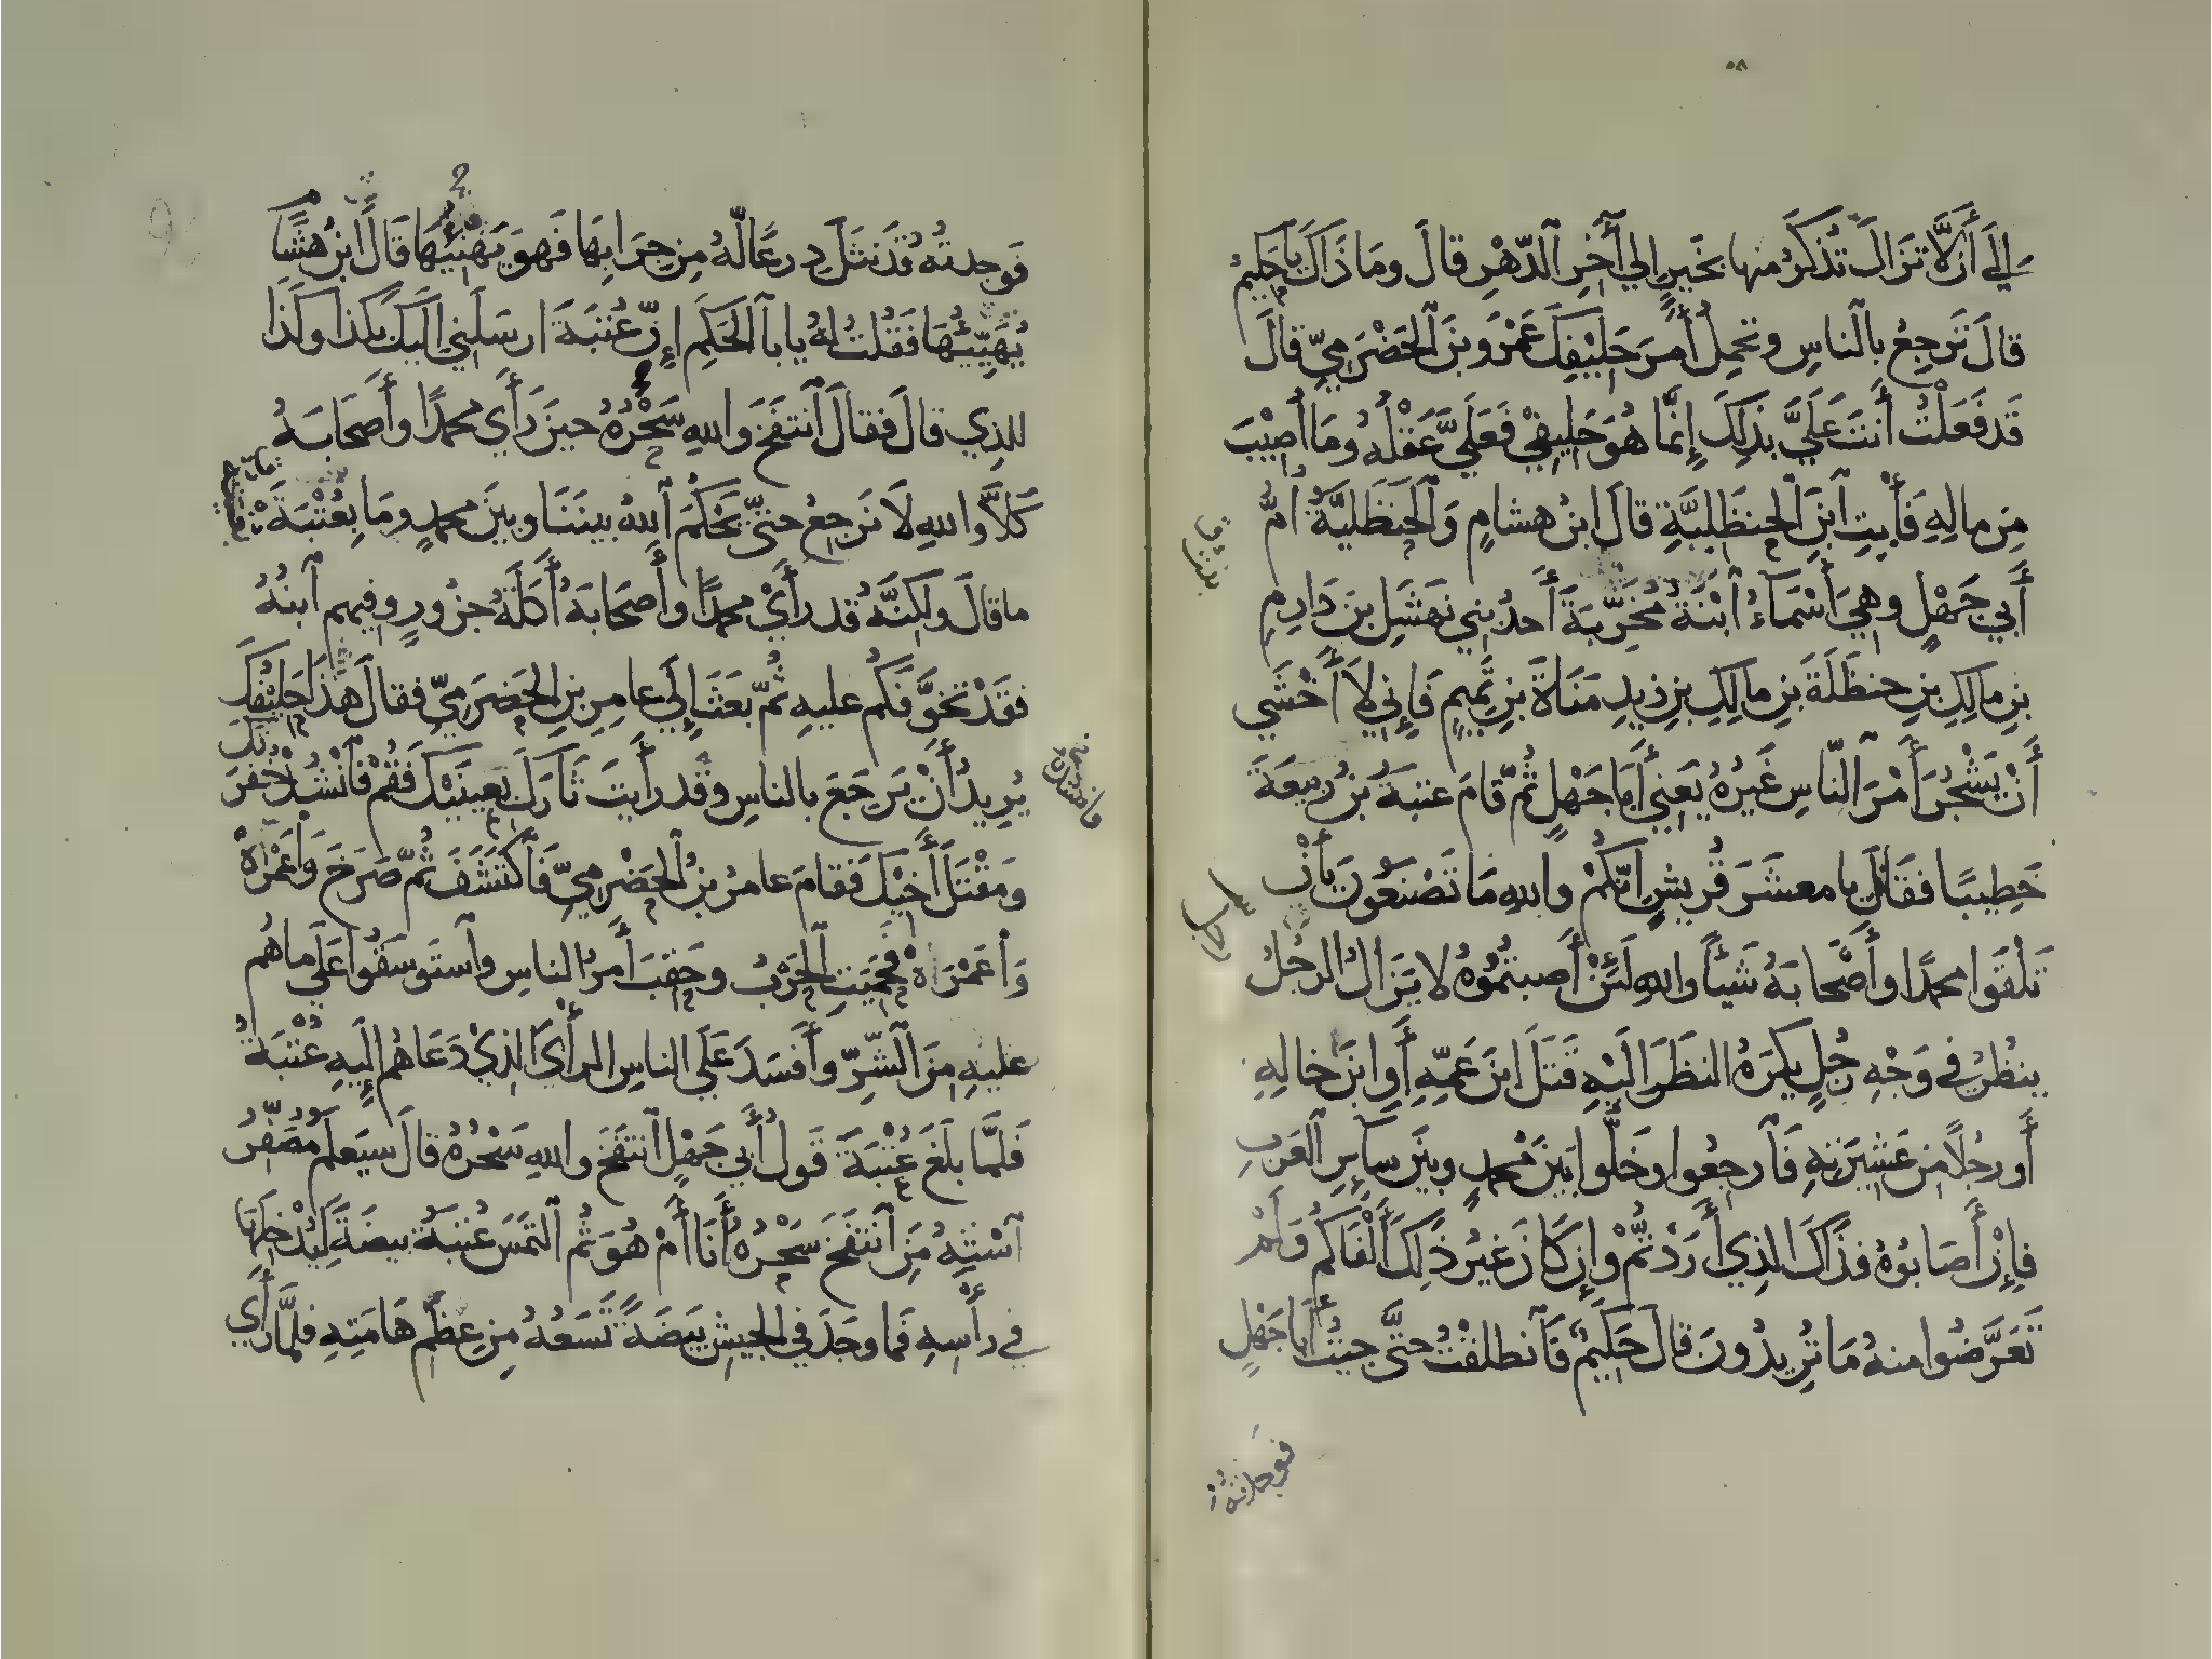 إلى أن لا تزال تذكر منها بخير إلي آخر الدهر قال وما ذاك يا حكيم
قال ترجع بالناس وتحمل أمر حليفك عمرو بن الحضرمي قال
قد فعلت أنت علي بذلك إنما هو حليفي فعلي عقله وما أصيب
من ماله فأت ابن الحنظلية قال ابن هشام والحنظلية أم
أبي جهل وهي أسماء ابنة مخربة أحد بني نهشل بن دارم
بن مالك بن حنظلة بن مالك بن زيد مناة بن تميم فإني لا أخشي
أن يشجر أمر الناس غيره يعني أبا جهل ثم قام عتبة بن ربيعة
خطيبا فقال يا معشر قريش إنكم والله ما تصنعون بأن
تلقوا محمدا وأصحابه شيأ والله لئن أصبتموه لا يزال الرجل
ينظر في وجه رجل يكره النظر إليه قتل ابن عمه أو ابن خاله
أو رجلا من عشيرته فارجعوا وخلوا بين محمد وبين سائر العرب
فإن أصابوه فذاك الذي أردتم وإن كان غير ذلك ألفاكم ولم
تعرضوا منه ما تريدون قال حكيم فانطلقت حتى جيت أبا جهل
فوجدته قد نثل درعا له من جرابها فهو يهنئها قال ابن هشام
يهيئها فقلت له يا با الحكم إن عتبة ارسلني إليك بكذا وكذا
للذي قال فقال انتفخ والله سحره حين رأي محمدا وأصحابه
كلا والله لا نرجع حتى يحكم الله بيننا وبين محمد وما بعتبة
ما قال ولكنه قد رأي محمدا وأصحابه أكلة جزور وفيهم ابنه
فقد تخوفكم عليه ثم بعث إلي عامر بن الحضرمي فقال هذا حليفك
يريد أن يرجع بالناس وقد رأيت ثارك بعينيك فقم فانشد خفرتك
ومقتل أخيك فقام عامر بن الحضرمي فاكتشف ثم صرخ واعمراه
واعمراه فحميت الحرب وحقب أمر الناس واستوسقوا علي ما هم
عليه من الشر وأفسد علي الناس الرأي الذي دعاهم إليه عتبة
فلما بلغ عتبة قول أبي جهل انتفخ والله سحره قال سيعلم مصفر
استه من انتفخ سحره أنا أم هو ثم التمس عتبة بيضة ليدخلها
في رأسه فما وجد في الجيش بيضة تسعه من عظم هامته فلما رأي